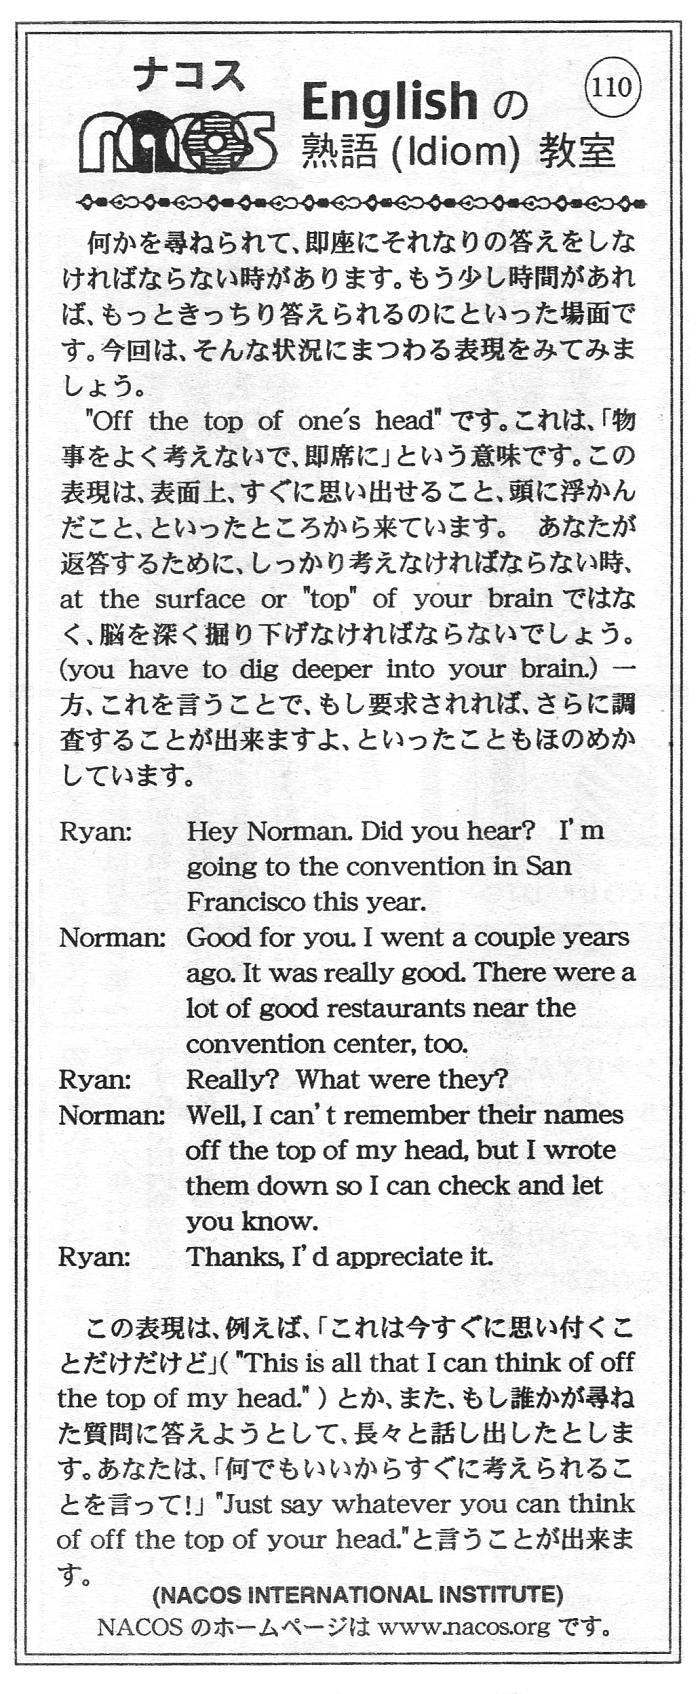 ナコス
NACOS
Englishの
110
熟語 (Idiom) 教室
何かを尋ねられて、即座にそれなりの答えをしな
ければならない時があります。もう少し時間があれ
ば、もっときっちり答えられるのにといった場面で
す。今回は、そんな状況にまつわる表現をみてみま
しょう。
"Off the top of one's head"です。これは、「物
事をよく考えないで、即席に」という意味です。この
表現は、表面上、すぐに思い出せること、頭に浮かん
だこと、といったところから来ています。 あなたが
返答するために、しっかり考えなければならない時、
at the surface or "top" of your brainではな
く、脳を深く掘り下げなければならないでしょう。
(you have to dig deeper into your brain.) 一
方、これを言うことで、もし要求されれば、さらに調
査することが出来ますよ、といったこともほのめか
しています。
Ryan: Hey Norman. Did you hear? I'm
going to the convention in San
Francisco this year.
Norman: Good for you. I went a couple years
ago. It was really good. There were a
lot of good restaurants near the
convention center, too.
Ryan: Really? What were they?
Norman: Well, I can't remember their names
off the top of my head, but I wrote
them down so I can check and let
you know.
Ryan: Thanks, I'd appreciate it.
この表現は、例えば、「これは今すぐに思い付くこ
とだけだけど」("This is all that I can think of off
the top of my head.")とか、また、もし誰かが尋ね
た質問に答えようとして、長々と話し出したとしま
す。あなたは、「何でもいいからすぐに考えられるこ
とを言って!」"Just say whatever you can think
of off the top of your head."と言うことが出来ま
す。
(NACOS INTERNATIONAL INSTITUTE)
NACOS のホームページは www.nacos.org です。